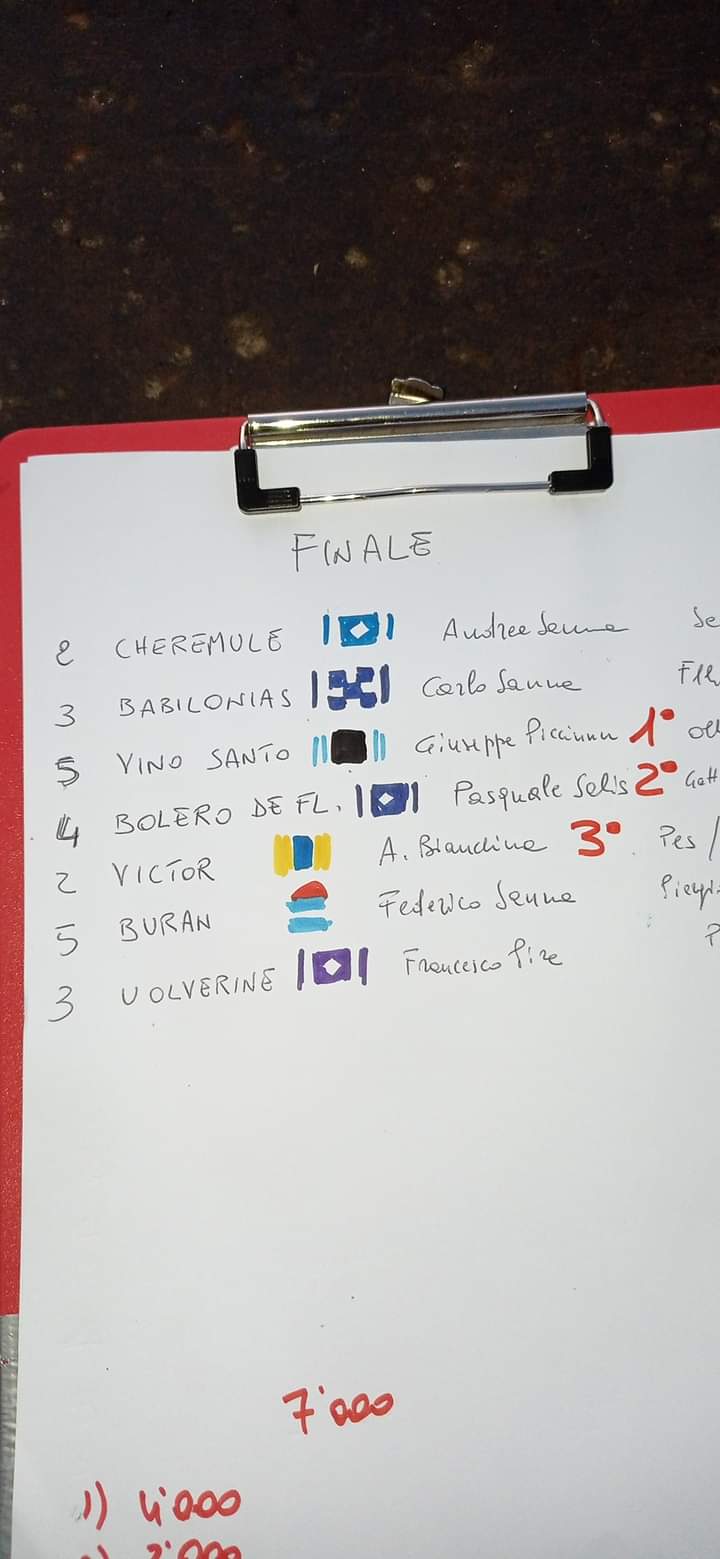 FINALE
2 CHEREMULE Andrea Sanna Se
3 BABILONIAS Carlo Sanna
5 VINO SANTO Giuseppe Piccinnu 1°
4 BOLERO DE FL. Pasquale Selis 2° Gatt
2 VICTOR A. Biandina 3° Pes /
5 BURAN Federico Sanna
3 UOLVERINE Francesco Pira P
7'000
1) 4'000